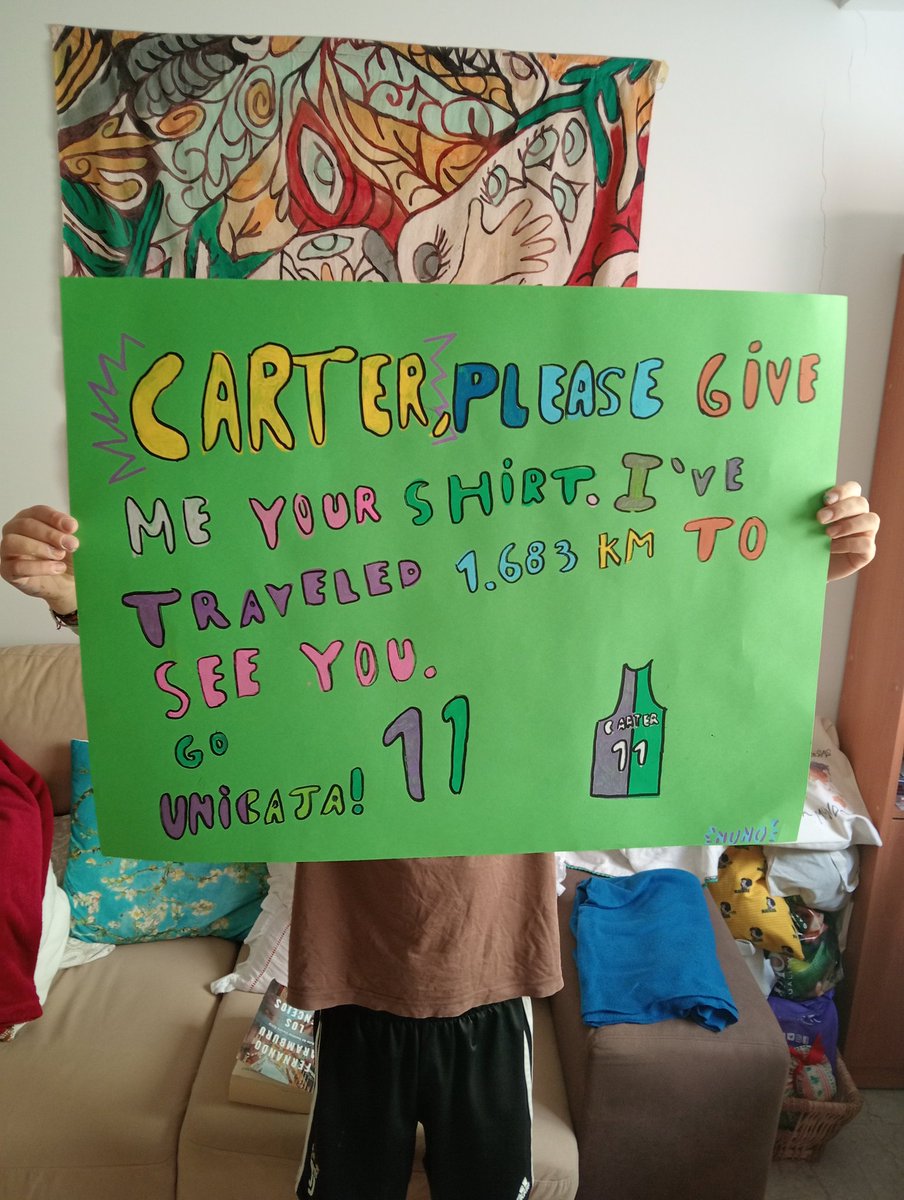 CARTER, PLEASE GIVE
ME YOUR SHIRT. I'VE
TRAVELED 1.683 KM TO
SEE YOU.
GO
UNICAJA! 11
CARTER
11
NUNO
FERNANDO
ARAMBURU
LOS